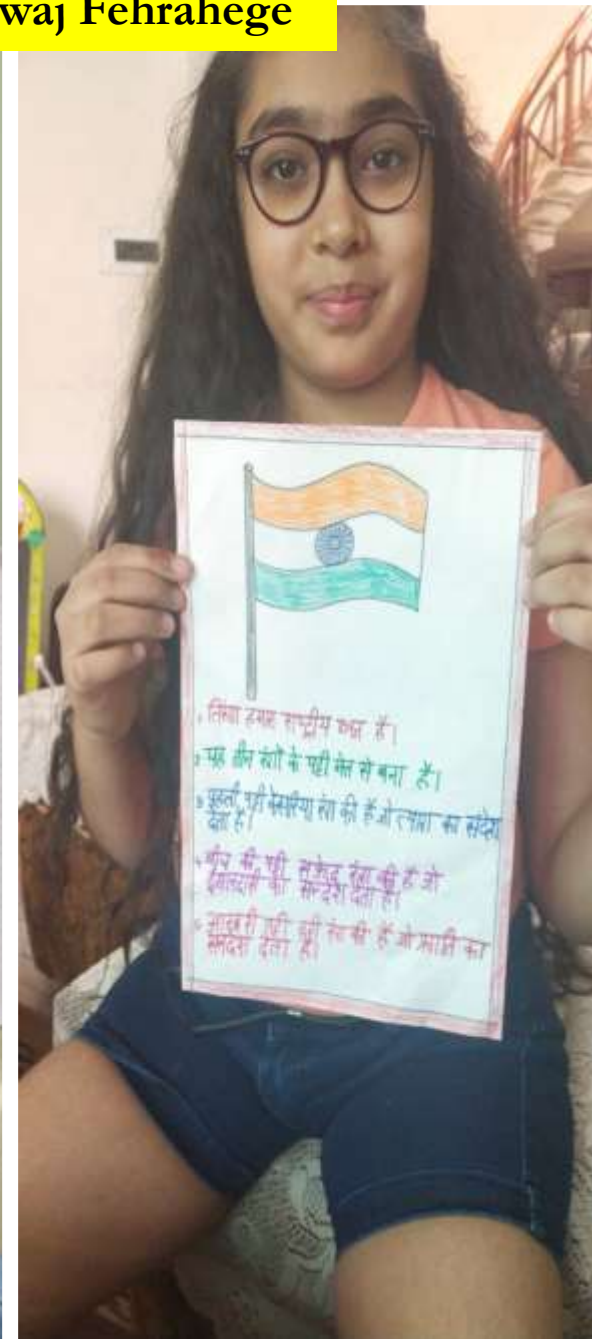 waj Fehrahege
1. तिरंगा हमारा राष्ट्रीय ध्वज है।
2 यह तीन रंगों के पट्टी मेल से बना है।
3 पहली पट्टी केसरिया रंग की है जो त्याग का संदेश
देता है।
4 बीच की पट्टी सफेद रंग की है जो
ईमानदारी का सन्देश देता है।
5 आखरी पट्टी हरी रंग की है जो क्रांति का
सन्देश देता है।